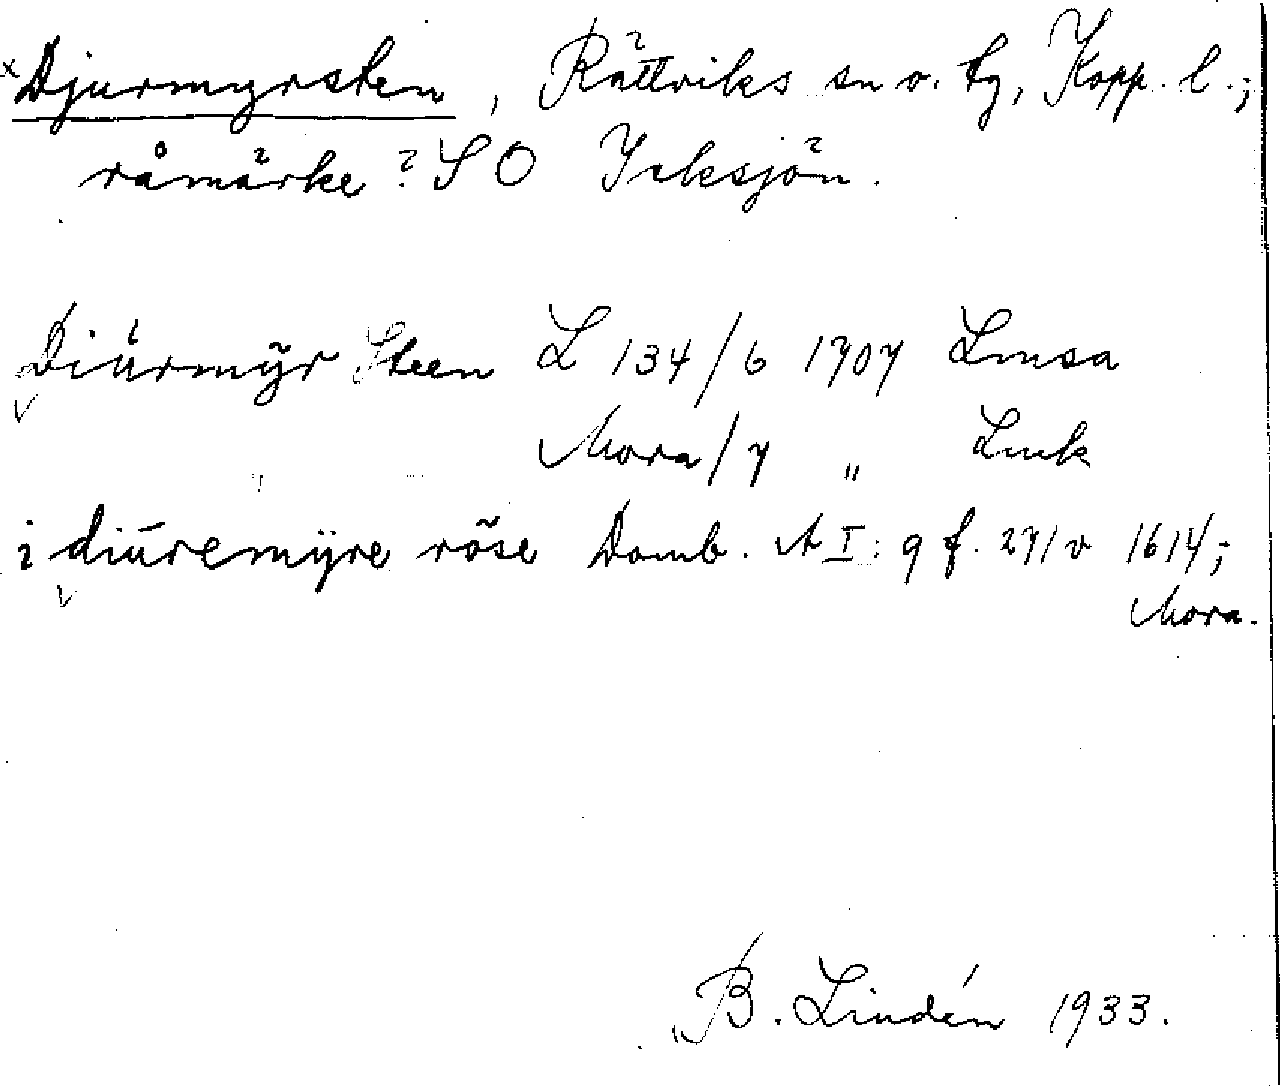 x Djurmyrsten, Rättviks sn o. tg, Kopp. l.;
råmärke? SO Ycksjön.
Diürmÿr Steen L 134/6 1707 Lmsa
Mora/7 " Lmk
i diüremÿre röse Domb. A I: 9 f. 271 v 1614;
Mora.
B. Lindén 1933.